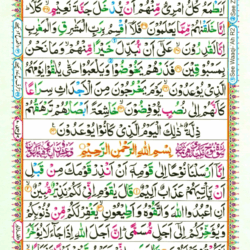 اَيَطْمَعُ كُلُّ امْرِئٍ مِّنْهُمْ اَنْ يُّدْخَلَ جَنَّةَ نَعِيْمٍ كَلَّا
اِنَّا خَلَقْنٰهُمْ مِّمَّا يَعْلَمُوْنَ فَلَاۤ اُقْسِمُ بِرَبِّ الْمَشٰرِقِ وَالْمَغٰرِبِ
اِنَّا لَقٰدِرُوْنَ عَلٰۤى اَنْ نُّبَدِّلَ خَيْرًا مِّنْهُمْ وَمَا نَحْنُ
بِمَسْبُوْقِيْنَ فَذَرْهُمْ يَخُوْضُوْا وَيَلْعَبُوْا حَتّٰى يُلٰقُوْا يَوْمَهُمُ
الَّذِيْ يُوْعَدُوْنَ يَوْمَ يَخْرُجُوْنَ مِنَ الْاَجْدَاثِ سِرَاعًا
كَاَنَّهُمْ اِلٰى نُصُبٍ يُّوْفِضُوْنَ خَاشِعَةً اَبْصَارُهُمْ تَرْهَقُهُمْ
ذِلَّةٌ ذٰلِكَ الْيَوْمُ الَّذِيْ كَانُوْا يُوْعَدُوْنَ
بِسْمِ اللّٰهِ الرَّحْمٰنِ الرَّحِيْمِ
اِنَّاۤ اَرْسَلْنَا نُوْحًا اِلٰى قَوْمِهٖۤ اَنْ اَنْذِرْ قَوْمَكَ مِنْ قَبْلِ
اَنْ يَّاْتِيَهُمْ عَذَابٌ اَلِيْمٌ قَالَ يٰقَوْمِ اِنِّيْ لَكُمْ نَذِيْرٌ مُّبِيْنٌ
اَنِ اعْبُدُوا اللّٰهَ وَاتَّقُوْهُ وَاَطِيْعُوْنِ يَغْفِرْ لَكُمْ مِّنْ ذُنُوْبِكُمْ
وَيُؤَخِّرْكُمْ اِلٰۤى اَجَلٍ مُّسَمًّى اِنَّ اَجَلَ اللّٰهِ اِذَا